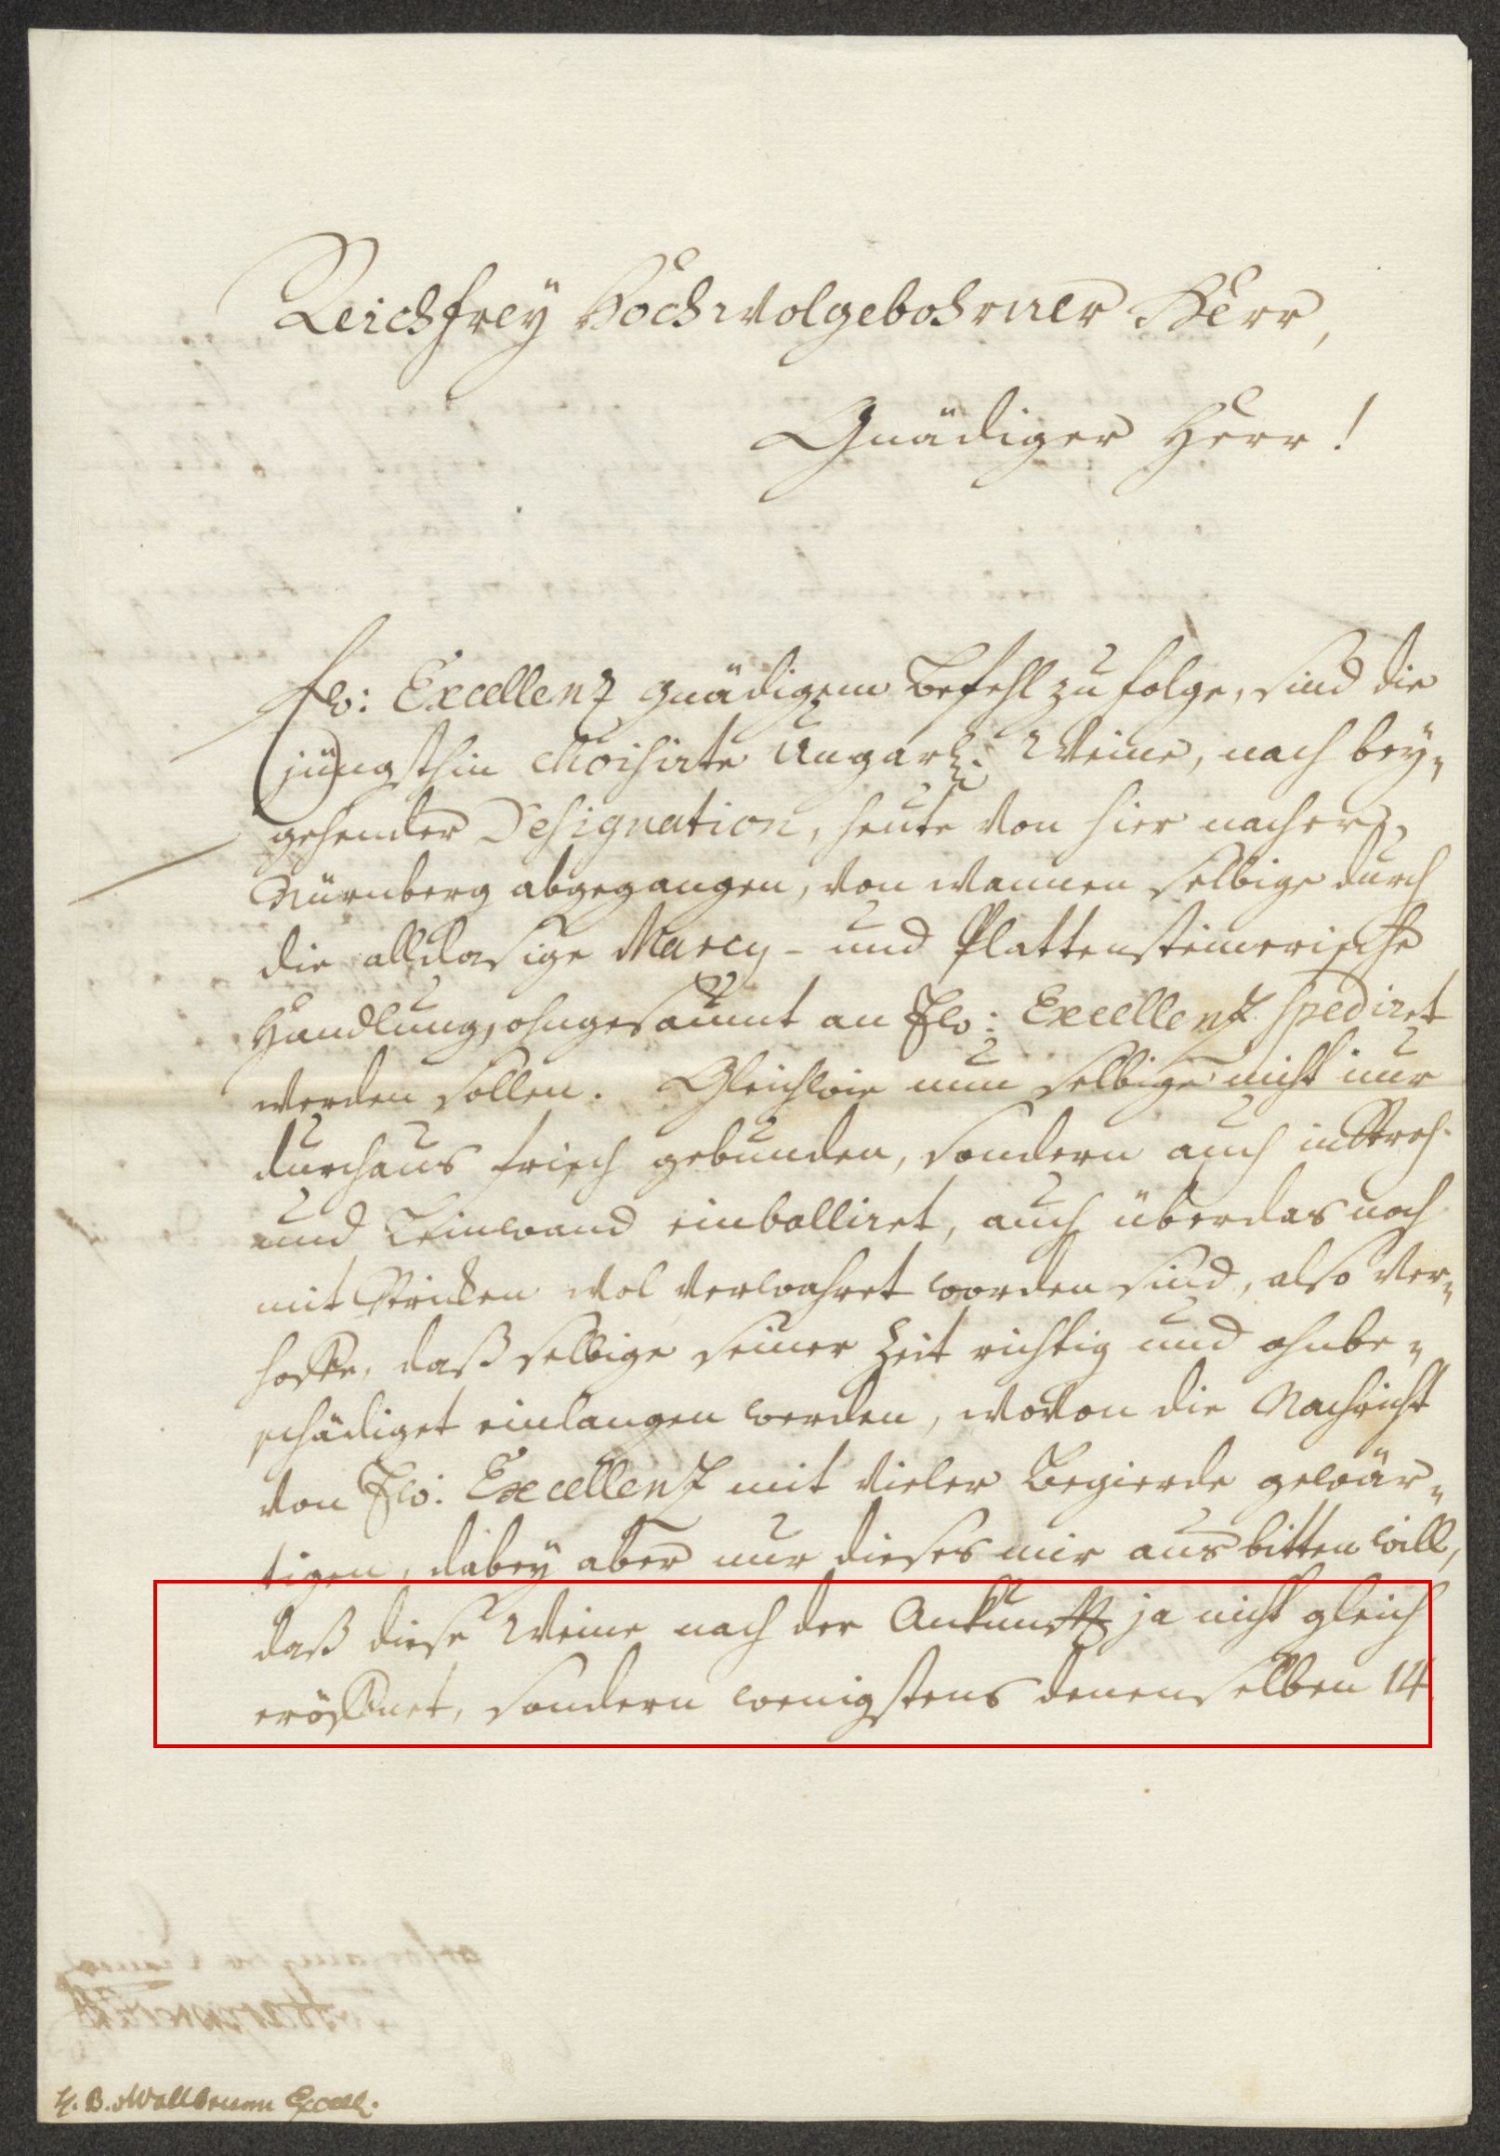 Reichsfrey Hochwolgebohrner Herr,
Gnädiger Herr!
Ew: Excellenz gnädigem Befehl zu folge, sind die
jüngsthin choisirte Ungar. Weine, nach bey-
gehender Designation, heute von hier nacher
Nürnberg abgegangen, von wannen selbige durch
die alldasige Marcy- und Plattensteinerische
Handlung, ohngesäumt an Ew: Excellenz spediret
werden sollen. Gleichwie nun selbige nicht nur
durchaus frisch gebunden, sondern auch in Stroh
und Leinwand einballiret, auch überdas noch
mit Stricken wol verwahret worden sind, also ver-
hoffe, daß selbige seiner Zeit richtig und ohnbe-
schädiget einlangen werden, wovon die Nachricht
von Ew: Excellenz mit vieler Begierde gewär-
tigen, dabey aber nur dieses mir ausbitten will,
daß diese Weine nach der Ankunfft ja nicht gleich
eröffnet, sondern wenigstens denenselben 14
H. B. Wallbrunn Excell.